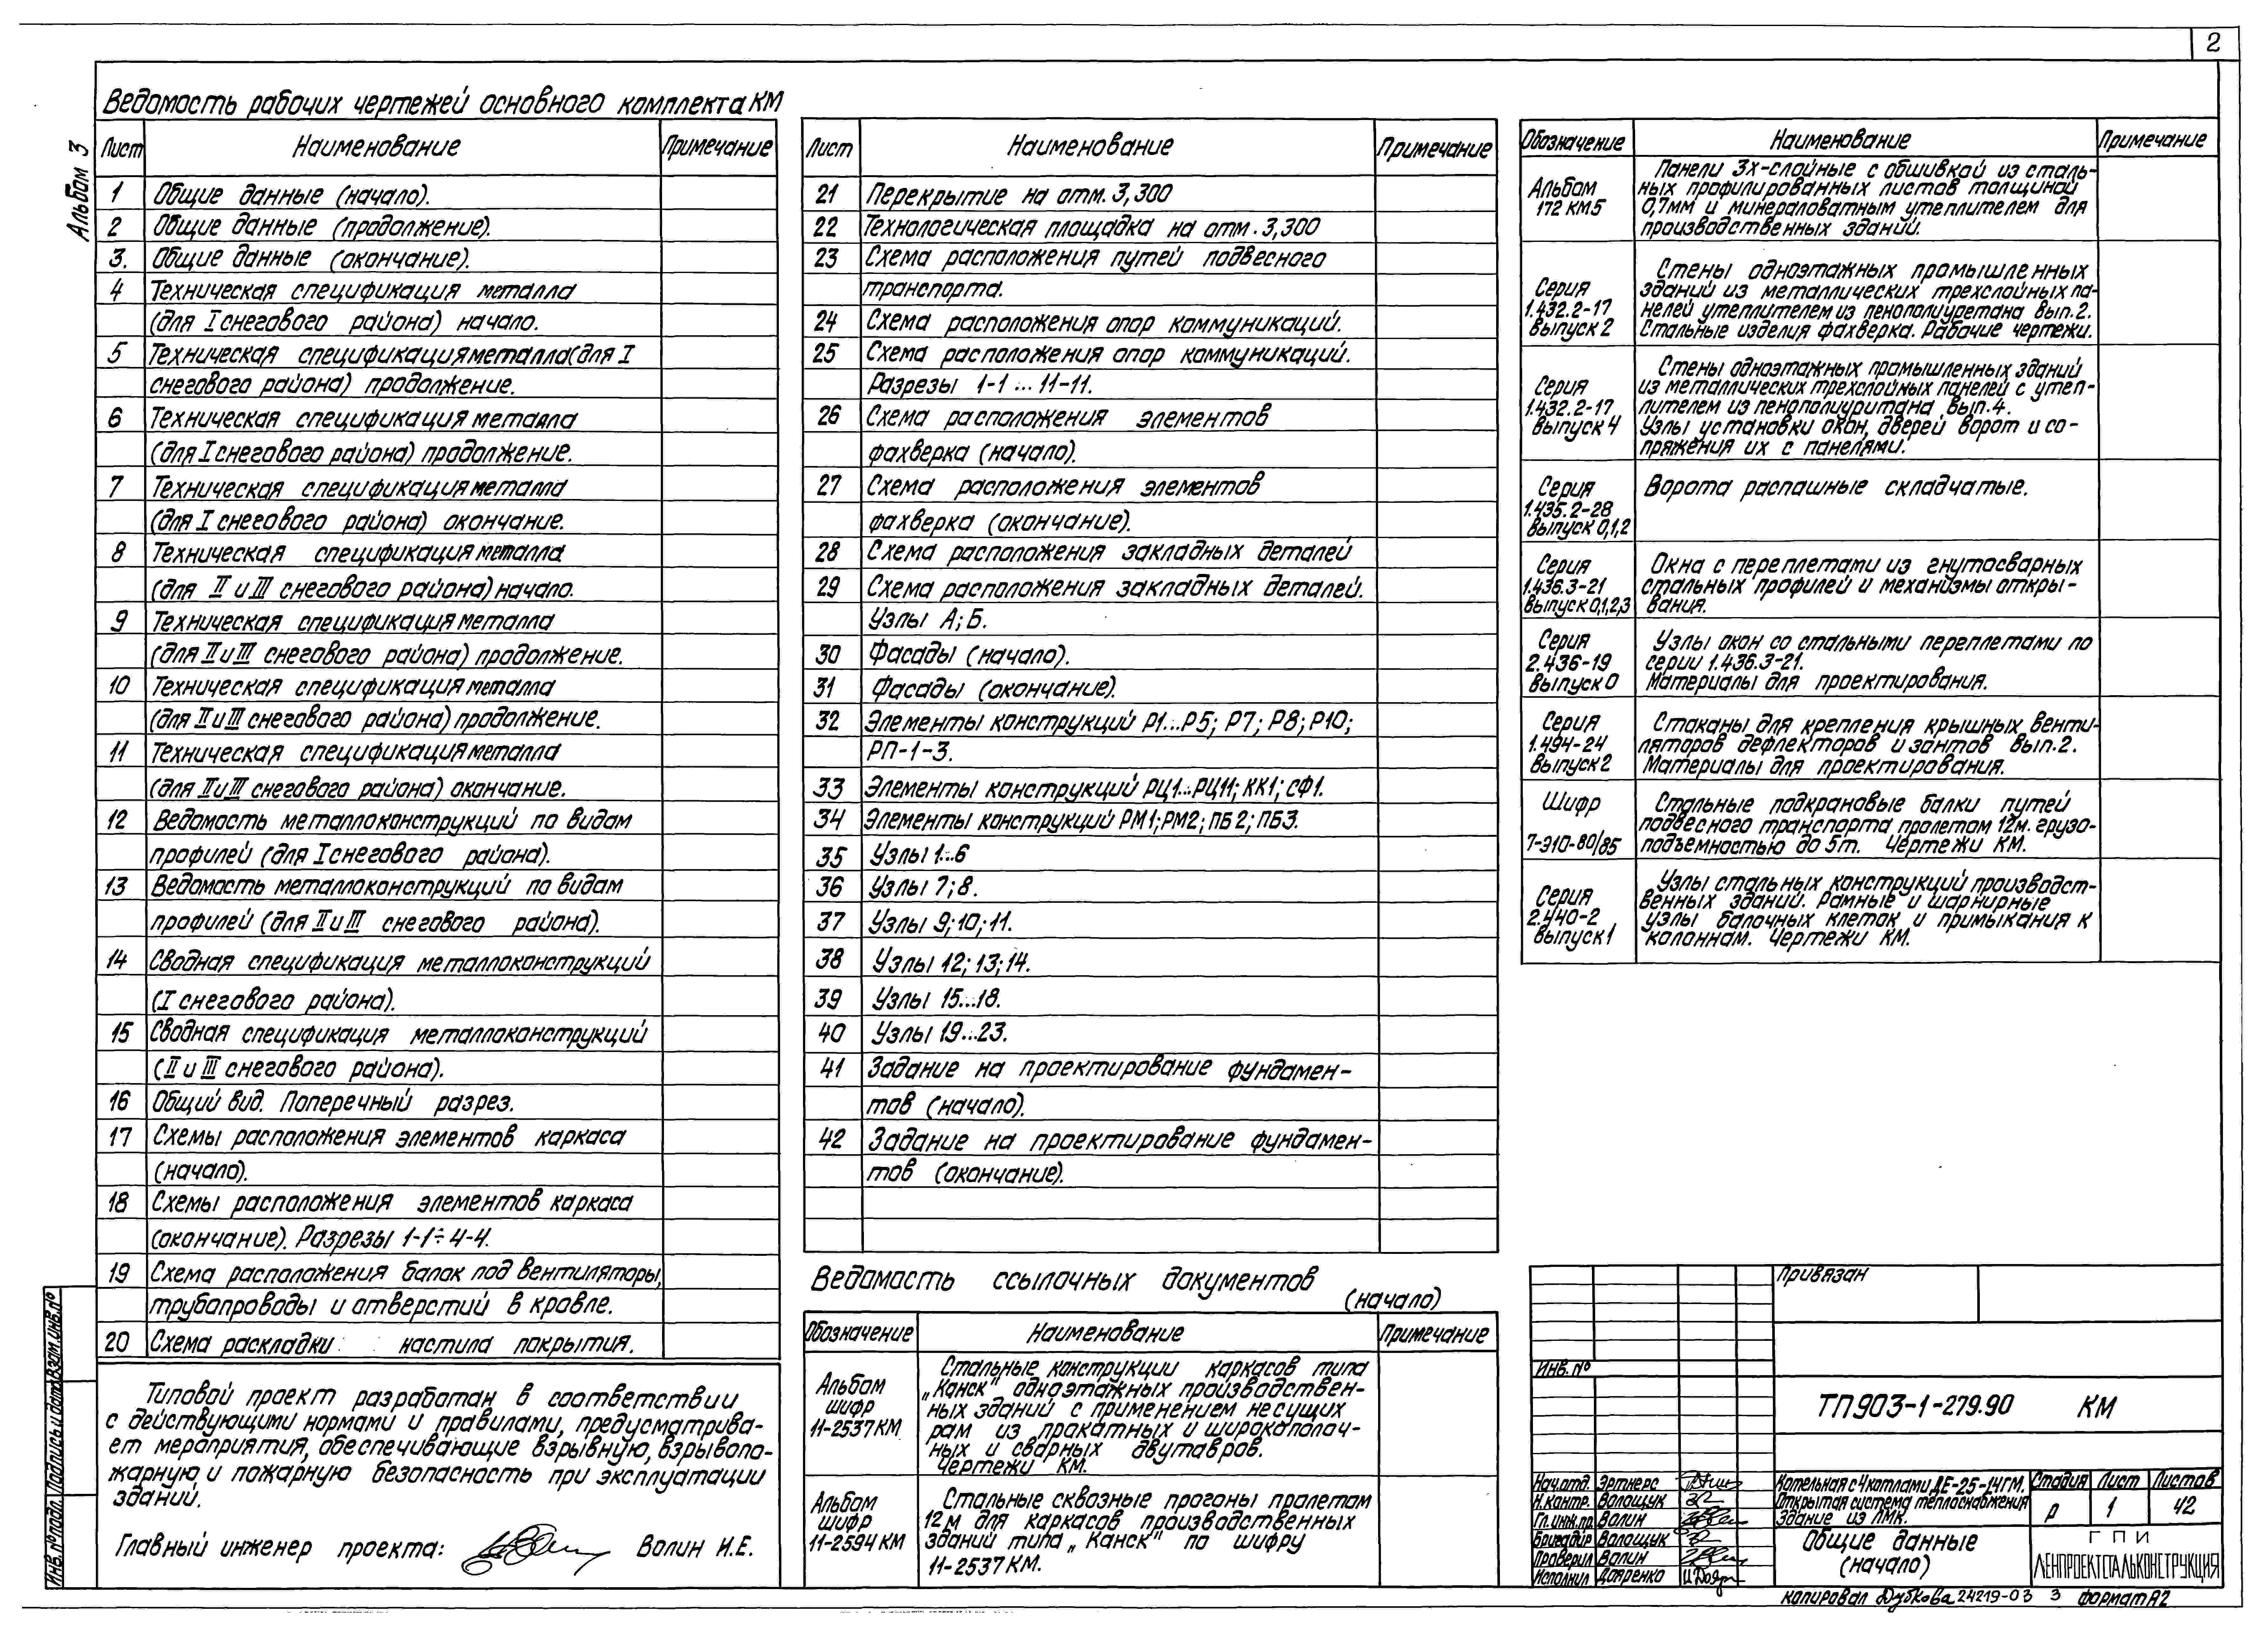 2
Альбом 3
Ведомость рабочих чертежей основного комплекта КМ
Лист Наименование Примечание
1 Общие данные (начало).
2 Общие данные (продолжение).
3. Общие данные (окончание).
4 Техническая спецификация металла
(для I снегового района) начало.
5 Техническая спецификация металла (для I
снегового района) продолжение.
6 Техническая спецификация металла
(для I снегового района) продолжение.
7 Техническая спецификация металла
(для I снегового района) окончание.
8 Техническая спецификация металла
(для II и III снегового района) начало.
9 Техническая спецификация металла
(для II и III снегового района) продолжение.
10 Техническая спецификация металла
(для II и III снегового района) продолжение.
11 Техническая спецификация металла
(для II и III снегового района) окончание.
12 Ведомость металлоконструкций по видам
профилей (для I снегового района).
13 Ведомость металлоконструкций по видам
профилей (для II и III снегового района).
14 Сводная спецификация металлоконструкций
(I снегового района).
15 Сводная спецификация металлоконструкций
(II и III снегового района).
16 Общий вид. Поперечный разрез.
17 Схемы расположения элементов каркаса
(начало).
18 Схемы расположения элементов каркаса
(окончание). Разрезы 1-1÷4-4.
19 Схема расположения балок под вентиляторы,
трубопроводы и отверстий в кровле.
20 Схема раскладки настила покрытия.
Типовой проект разработан в соответствии
с действующими нормами и правилами, предусматрива-
ет мероприятия, обеспечивающие взрывную, взрывопо-
жарную и пожарную безопасность при эксплуатации
зданий.
Главный инженер проекта: Волин И.Е.
Лист Наименование Примечание
21 Перекрытие на отм. 3,300
22 Технологическая площадка на отм. 3,300
23 Схема расположения путей подвесного
транспорта.
24 Схема расположения опор коммуникаций.
25 Схема расположения опор коммуникаций.
Разрезы 1-1...11-11.
26 Схема расположения элементов
фахверка (начало).
27 Схема расположения элементов
фахверка (окончание).
28 Схема расположения закладных деталей
29 Схема расположения закладных деталей.
Узлы А; Б.
30 Фасады (начало).
31 Фасады (окончание).
32 Элементы конструкций Р1...Р5; Р7; Р8; Р10;
РП-1-3.
33 Элементы конструкций РЦ1...РЦ11; КК1; СФ1.
34 Элементы конструкций РМ1; РМ2; ПБ2; ПБ3.
35 Узлы 1...6
36 Узлы 7; 8.
37 Узлы 9; 10; 11.
38 Узлы 12; 13; 14.
39 Узлы 15...18.
40 Узлы 19...23.
41 Задание на проектирование фундамен-
тов (начало).
42 Задание на проектирование фундамен-
тов (окончание).
Ведомасть ссылочных документов
(начало)
Обозначение Наименование Примечание
Альбом
шифр
11-2537 КМ
Стальные конструкции каркасов типа
„Канск" одноэтажных производствен-
ных зданий с применением несущих
рам из прокатных и широкополоч-
ных и сварных двутавров.
Чертежи КМ.
Альбом
шифр
11-2594 КМ
Стальные сквозные прогоны пролетом
12 м для каркасов производственных
зданий типа „Канск" по шифру
11-2537 КМ.
Обозначение Наименование Примечание
Альбом
172 КМ5
Панели 3х-слойные с обшивкой из сталь-
ных профилированных листов толщиной
0,7мм и минераловатным утеплителем для
производственных зданий.
Серия
1.432.2-17
выпуск 2
Стены одноэтажных промышленных
зданий из металлических трехслойных па-
нелей утеплителем из пенополиуретана вып. 2.
Стальные изделия фахверка. Рабочие чертежи.
Серия
1.432.2-17
выпуск 4
Стены одноэтажных промышленных зданий
из металлических трехслойных панелей с утеп-
лителем из пенополиуритана вып. 4.
Узлы установки окон, дверей ворот и со-
пряжения их с панелями.
Серия
1.435.2-28
выпуск 0,1,2
Ворота распашные складчатые.
Серия
1.436.3-21
выпуск 0,1,2,3
Окна с переплетами из гнутосварных
стальных профилей и механизмы откры-
вания.
Серия
2.436-19
выпуск 0
Узлы окон со стальными переплетами по
серии 1.436.3-21.
Материалы для проектирования.
Серия
1.494-24
выпуск 2
Стаканы для крепления крышных венти-
ляторов дефлекторов и зонтов вып. 2.
Материалы для проектирования.
Шифр
7-910-80/85
Стальные подкрановые балки путей
подвесного транспорта пролетом 12м. грузо-
подъемностью до 5т. Чертежи КМ.
Серия
2.440-2
выпуск 1
Узлы стальных конструкций производст-
венных зданий. Рамные и шарнирные
узлы балочных клеток и примыкания к
колоннам. Чертежи КМ.
Привязан
Инв. №
ТП 903-1-279.90 КМ
Нач.отд. Эртнерс
Н.контр. Волощук
Гл.инж.пр. Волин
Бригадир Волощук
Проверил Волин
Исполнил Дояренко
Котельная с 4 котлами ДЕ-25-14ГМ.
Открытая система теплоснабжения
Здание из ЛМК.
Стадия Лист Листов
Р 1 42
Общие данные
(начало)
ГПИ
ЛЕНПРОЕКТСТАЛЬКОНСТРУКЦИЯ
Инв.№ подл. Подпись и дата Взам.инв.№
копировал Дубкова 24219-03 3 формат А2